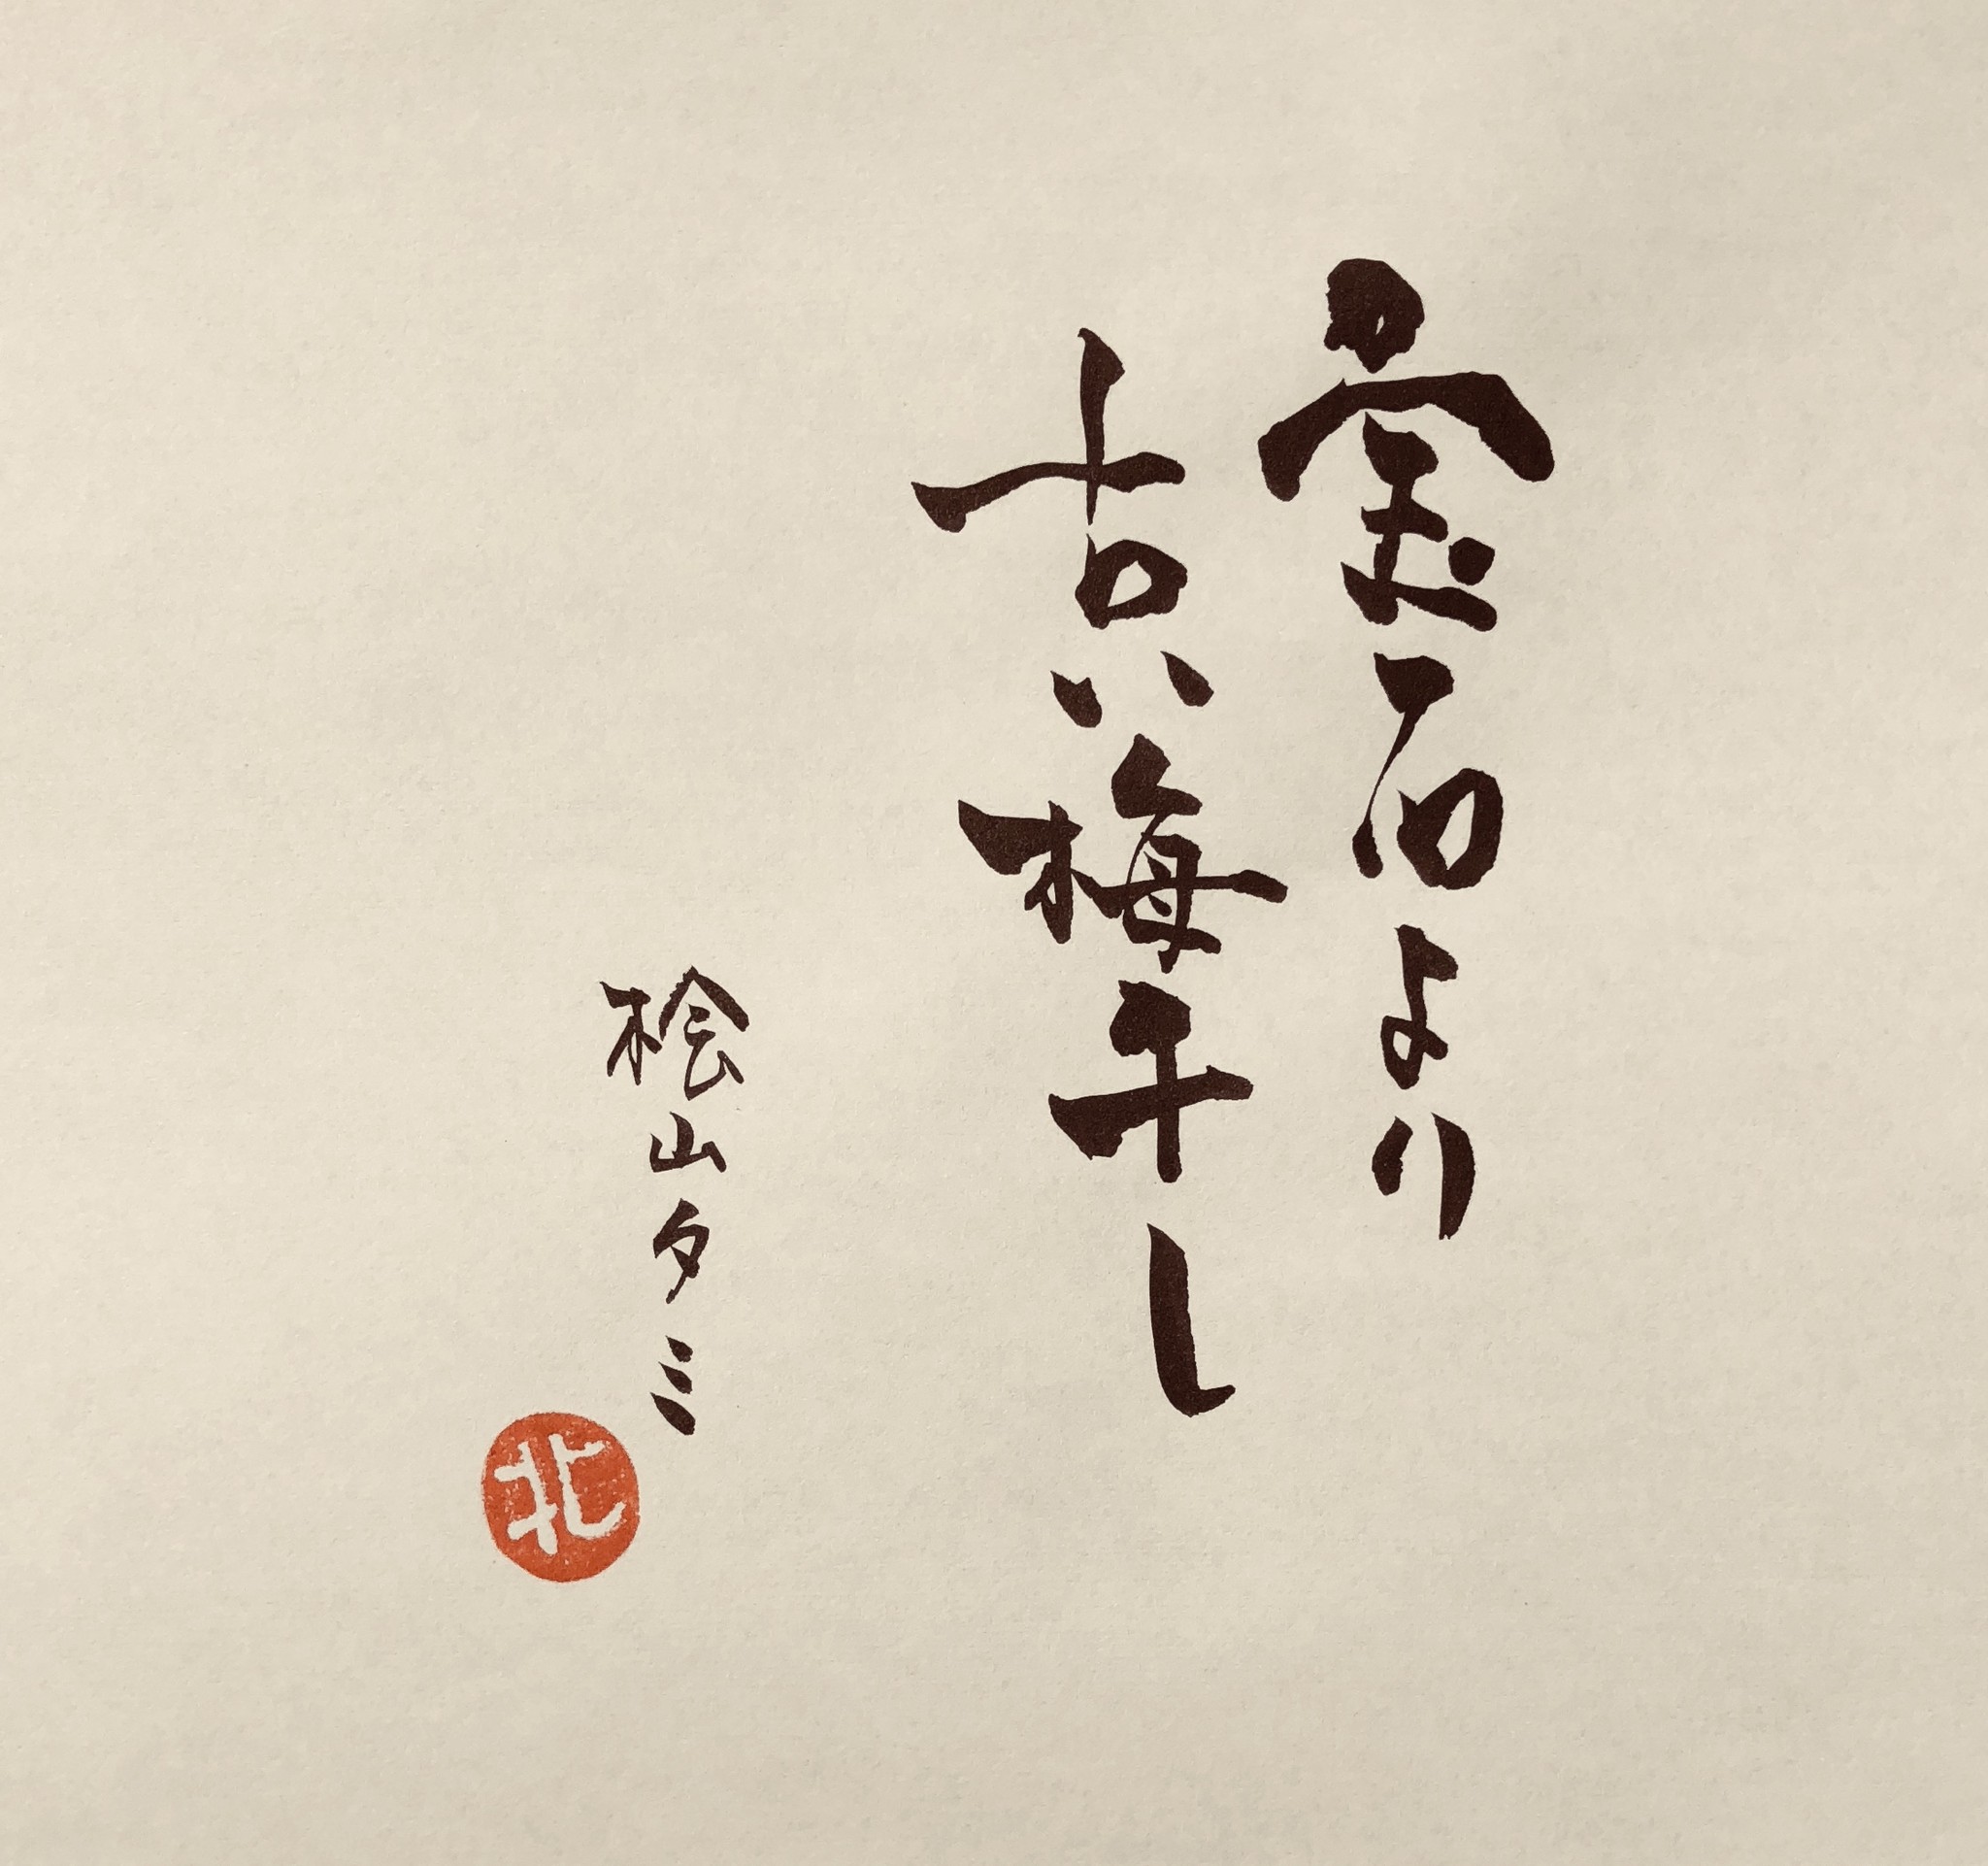 宝石より
古い梅干し
桧山タミ
北